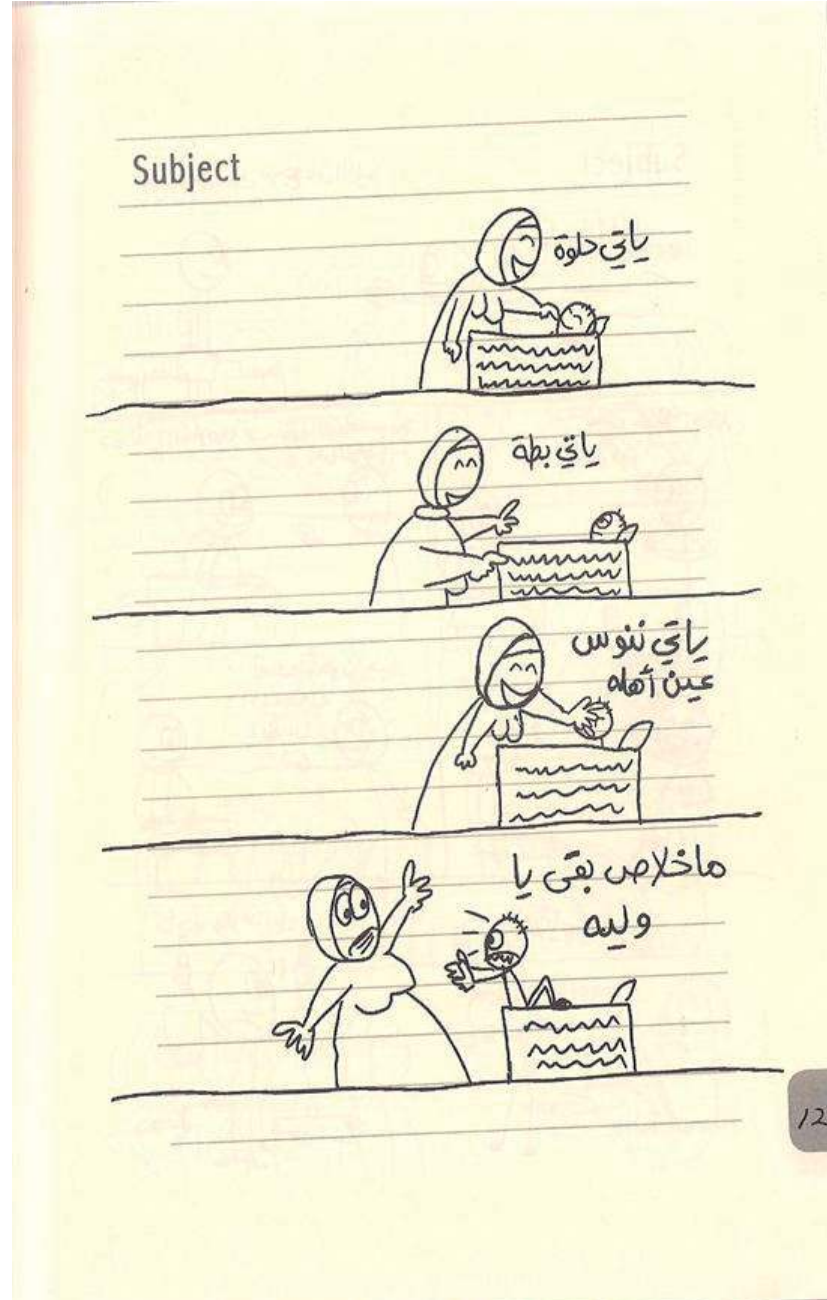 Subject
ياتي حلوة
ياتي بطة
ياتي ننوس
عين أهله
ماخلاص بقى يا
وليه
12